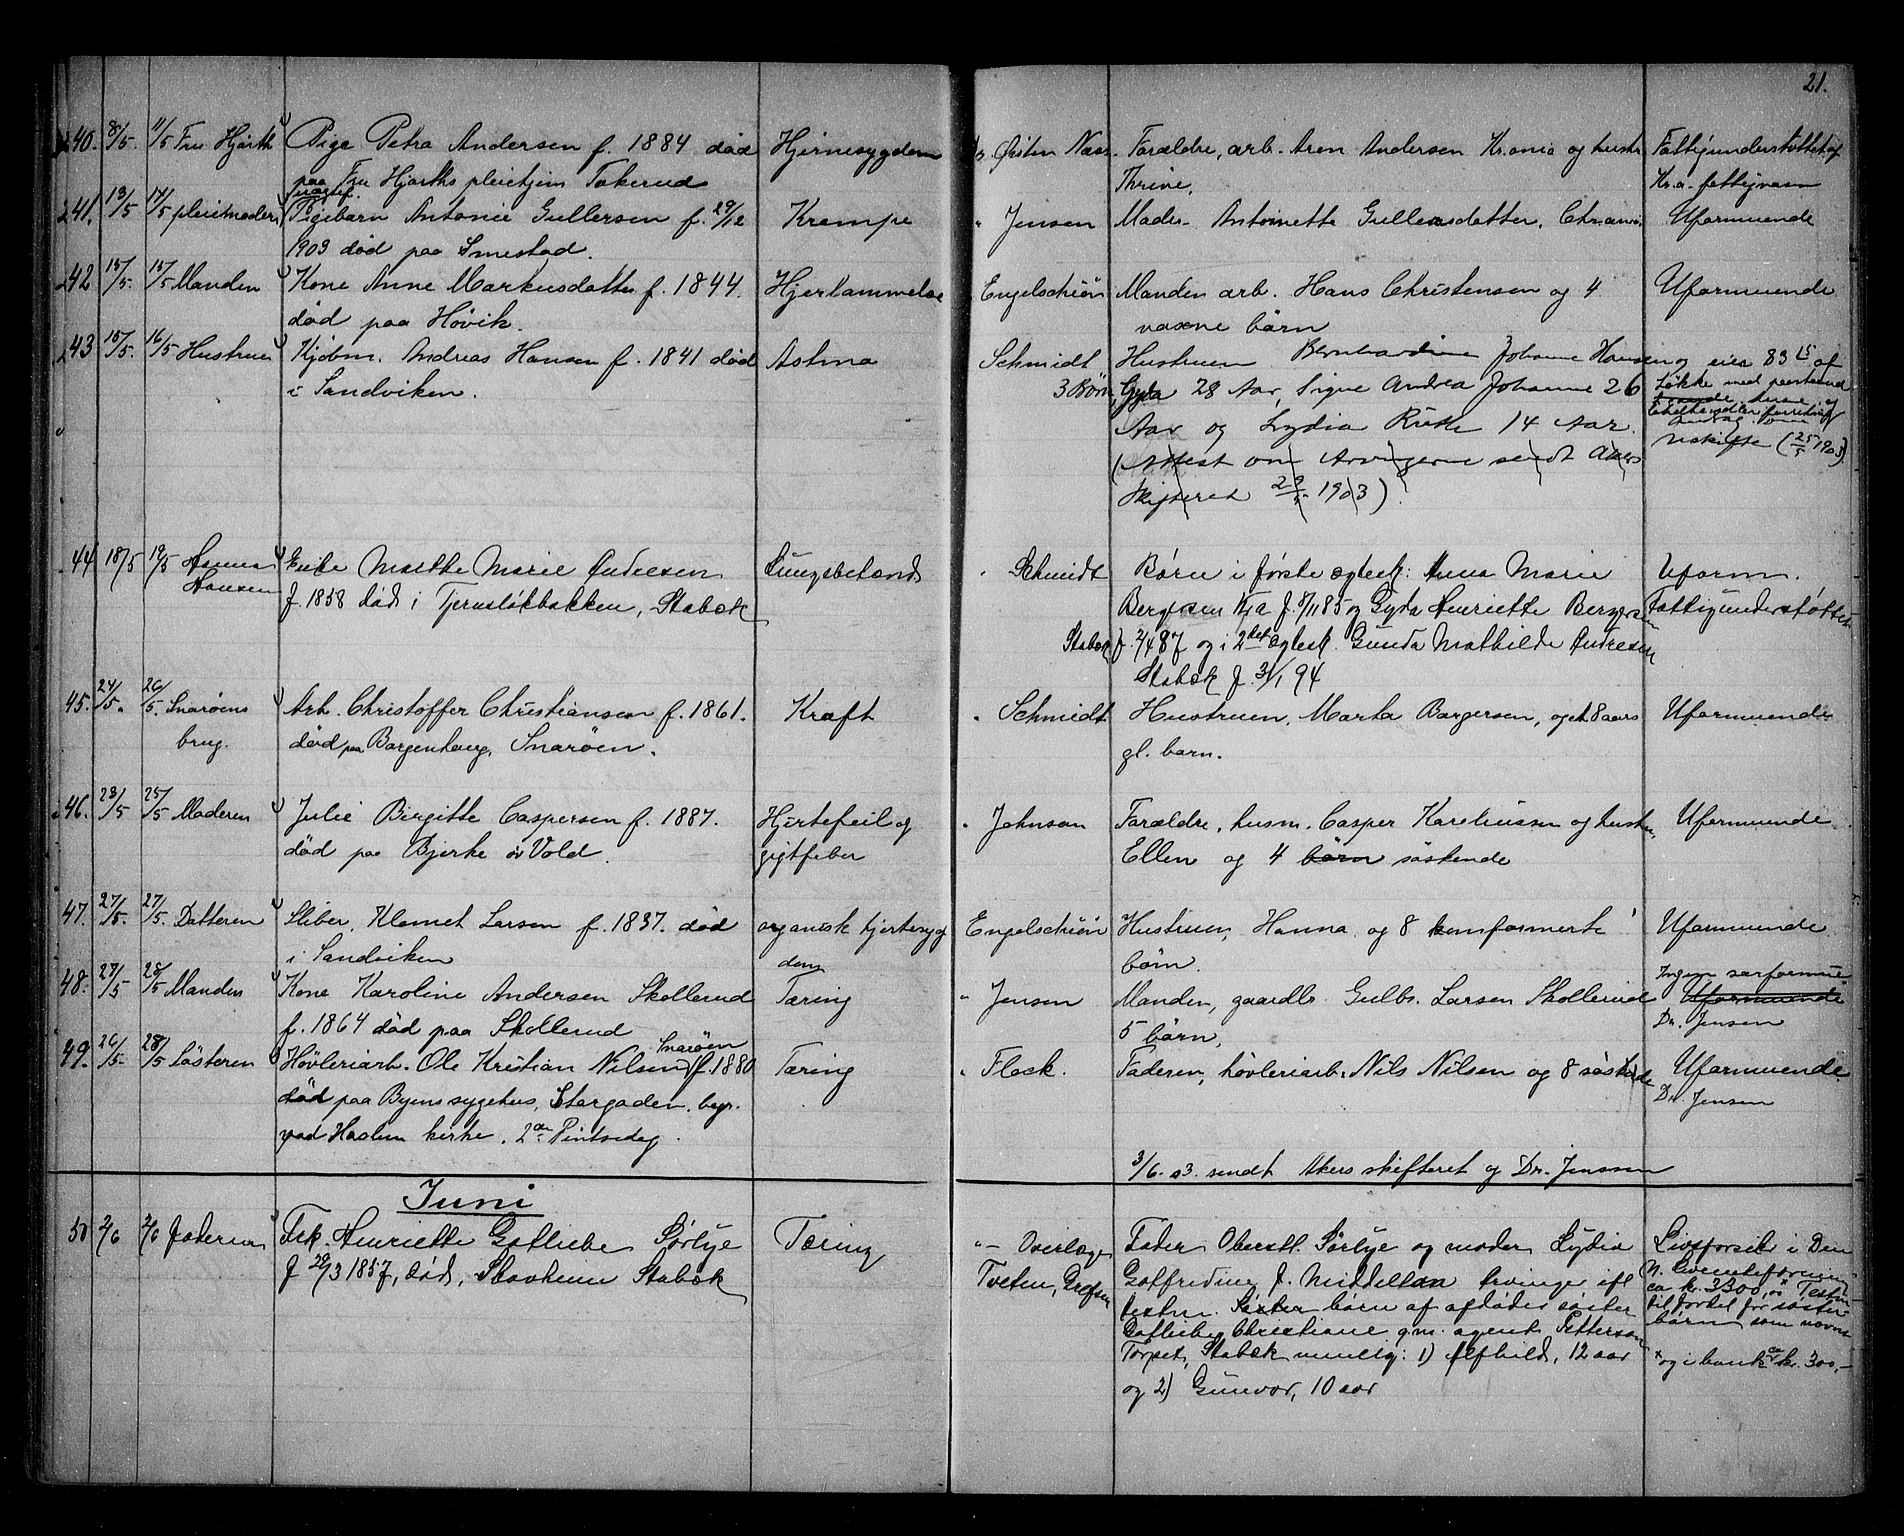 21.
40. 8/5. 11/5 Fru Hjorth Pige Petra Andersen f. 1884 død Hjernesygdom Østen Næss Forældre, arb. Aren Andersen Kr.ania og hustr. Fattigunderstøttet af
paa Fru Hjorths pleiehjem Tokerud Thrine. Kr.a. fattigvæsen
241. 13/5 14/5 pleiemoder Pigebarn Antonie Gullersen f. 29/12 Krampe " Jensen Moder Antoinette Gullersdatter. Chr.ania. Uformuende
1903 død paa Smestad.
242 15/5. 15/5 Manden Kone Anne Markusdatter f. 1844. Hjertlammelse Engelschiøn Manden arb. Hans Christensen og 4 Uformuende
død paa Høvik. voxne børn
243 15/5. 16/5 Hustruen Kjøbm. Andreas Hansen f. 1841 død Astma Schmidt Hustruen Bernhardine Johanne Hansen og eier 83 15 af
i Sandviken. 3 Børn, Gyda 28 Aar, Signe Andrea Johanne 26 Løkke med
Aar og Lydia Ruth 14 Aar.
(Attest om Arvingerne sendt Akers uskifte (25/5 1903)
Skifteret 29/5 1903)
44 18/5 19/5 Hanna Enke Marthe Marie Andresen Lungebetænd. " Schmidt Børn i første ægtesk: Anna Marie Uform.
Hansen f. 1858 død i Tjernsløkbakken, Stabæk Bergersen Kra f. 8/1 85 og Gyda Henriette Bergersen Fattigunderstøttet
Stabæk f. 2/4 87 og i 2det ægtesk. Gunda Mathilde Andresen
Stabæk f. 3/1 94
45. 24/5. 26/5. Snarøens Arb. Christoffer Christiansen f. 1861. Kræft " Schmidt Hustruen, Marta Borgersen, og et 8 aars Uformuende
brug. død paa Borgenhaug, Snarøen. gl. barn.
46. 23/5 25/5 Moderen Julie Birgitte Caspersen f. 1887. Hjertefeil og " Johnson Forældre, husm. Casper Kareliussen og hustru, Uformuende
død paa Bjerke v Vold. gigtfeber Ellen og 4 børn søskende
47. 27/5. 27/5. Datteren Sliber, Klemet Larsen f. 1837. død organisk hjertesyg Engelschiøn Hustruen, Hanna, og 8 konformerte Uformuende
i Sandviken dom børn.
48. 27/5 28/5 Manden Kone Karoline Andersen Skollerud Tæring " Jensen Manden, gaardbr. Gulbr. Larsen Skollerud Ingen særformue Uformuende
f. 1864 død paa Skollerud 5 børn. Dr. Jensen
49. 26/5. 28/5 Søsteren Høvleriarb. Ole Kristian Nilsen Snarøen f. 1880 Tæring " Flock. Faderen, høvleriarb. Nils Nilsen og 8 søskende Uformuende
død paa Byens sygehus, Storgaden. begr. Dr. Jensen
ved Haslum kirke. 2den Pintsedag.
3/6. 03. sendt Akers skifteret og Dr. Jenssen
Juni
50 2/6 2/6 Faderen Frk. Henriette Gotliebe Sørlye Tæring "- Overlæge Fader Oberstl. Sørlye og moder Lydia Livsforsikr i Den
f 20/3 1857, død, Skovheim Stabæk Tveten, Grefsen Gotfredine f. Middelton Arvinger ifl N. Livrenteforening
testm. Søster børn af afdøde søster ca kr. 3300,00 Testm
Gotliebe Christiane g.m. agent Petterson til fordel for søster-
Torpet, Stabæk nemlig: 1) Alfhild, 12 aar børn som nævnt
og 2) Gunvor, 10 aar + og i bank ca kr. 300,-